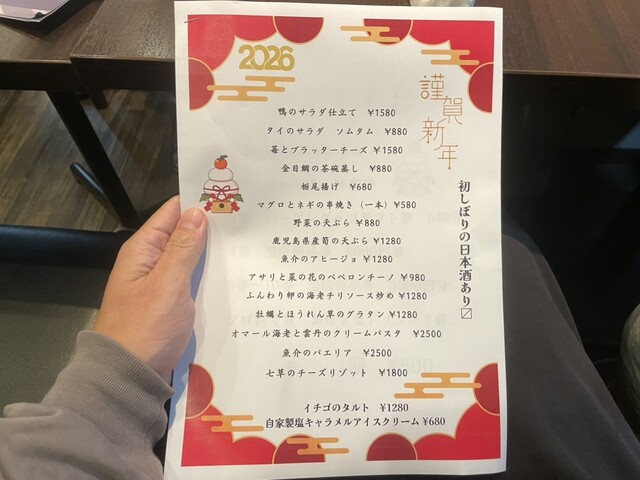 2026
謹賀新年
鴨のサラダ仕立て ¥1580
タイのサラダ ソムタム ¥880
苺とブラッターチーズ ¥1580
金目鯛の茶碗蒸し ¥880
栃尾揚げ ¥680
マグロとネギの串焼き（一本）¥580
野菜の天ぷら ¥880
鹿児島県産筍の天ぷら ¥1280
魚介のアヒージョ ¥1280
アサリと菜の花のペペロンチーノ ¥980
ふんわり卵の海老チリソース炒め ¥1280
牡蠣とほうれん草のグラタン ¥1280
オマール海老と雲丹のクリームパスタ ¥2500
魚介のパエリア ¥2500
七草のチーズリゾット ¥1800
イチゴのタルト ¥1280
自家製塩キャラメルアイスクリーム ¥680
初しぼりの日本酒あり〼